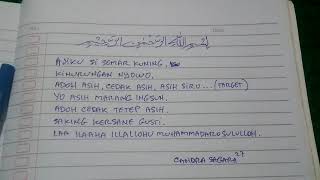 بِسْمِ اللَّهِ الرَّحْمَٰنِ الرَّحِيمِ
AJIKU SI SEMAR KUNING,
KINURUNGAN NYOWO,
ADOH ASIH, CEDAK ASIH, ASIH SIRU...(TARGET)
YO ASIH MARANG INGSUN.
ADOH CEDAK TETEP ASIH.
SAKING KERSANE GUSTI.
LAA ILAAHA ILLALLOHU MUHAMMADARO SULULLOH.
CANDRA SAGARA 27